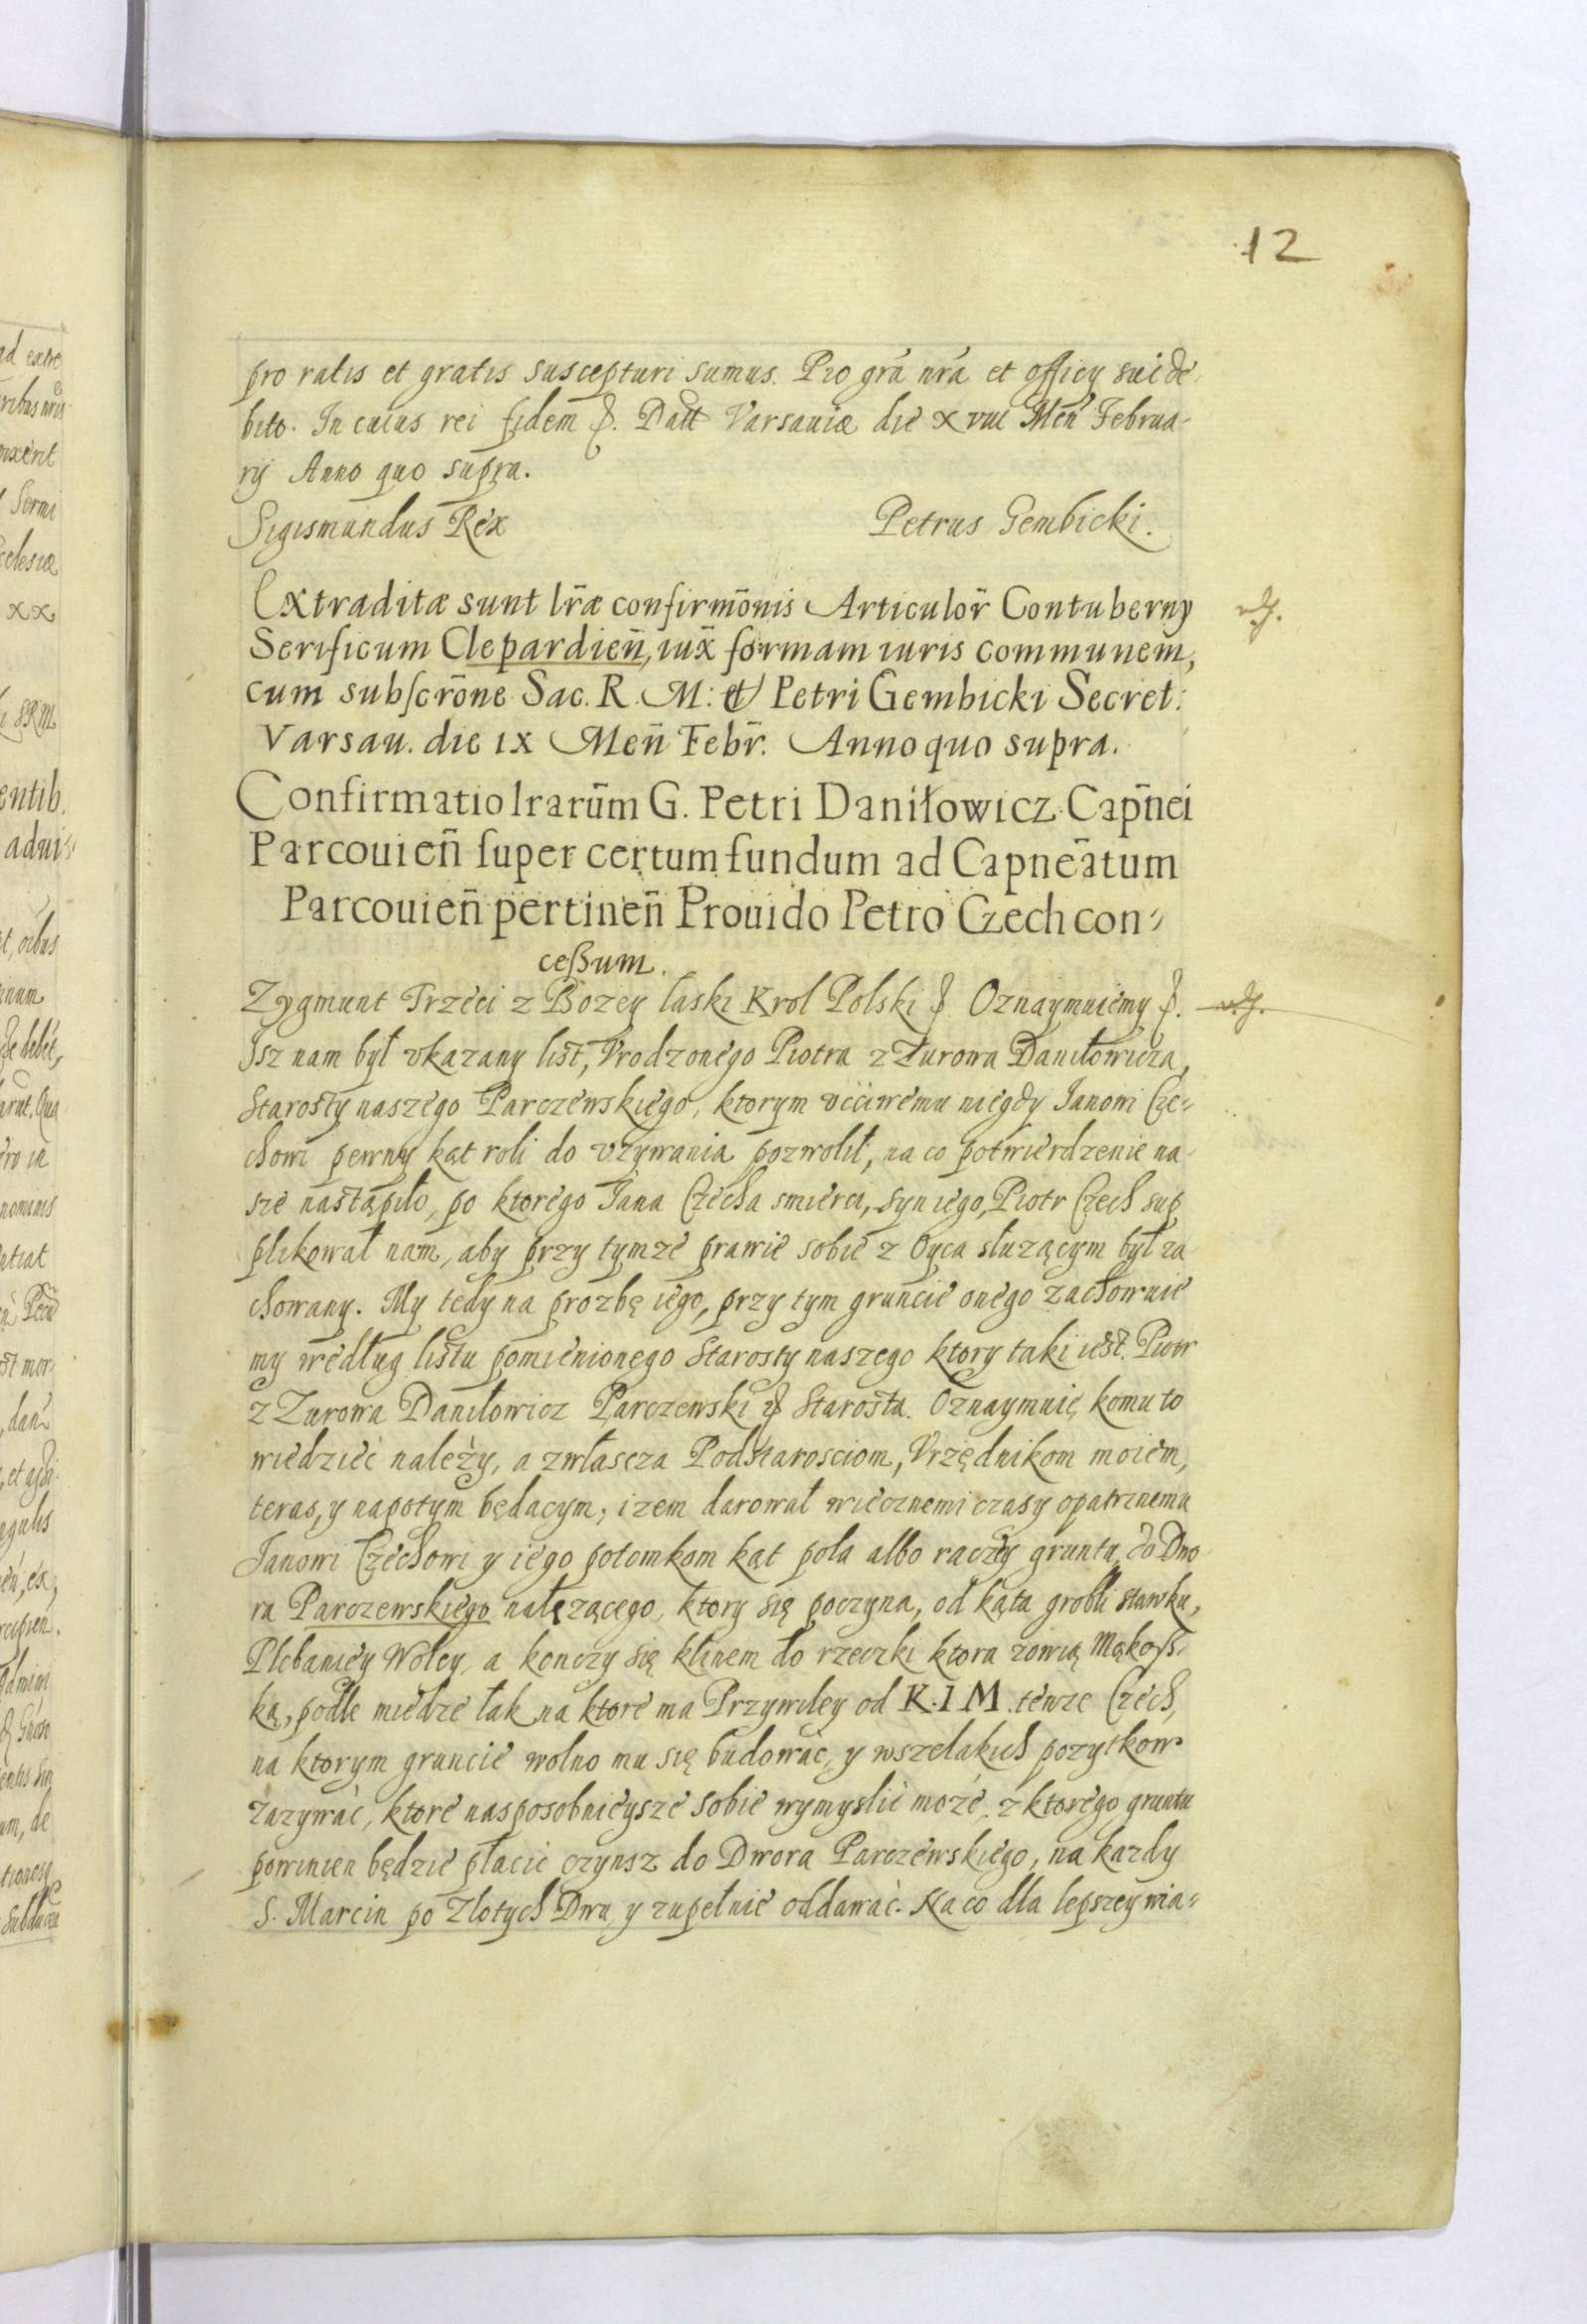 12
pro ratis et gratis suscepturi sumus. Pro grã nrã et officy sui de-
bito. In cuius rei fidem &. Datt Varsauiæ die xviii Men̄ Februa-
rij Anno quo supra.
Sigismundus Rex Petrus Gembicki.
Extraditæ sunt lr̄æ confirmōnis Articulor̄ Contuberny
Serificum Clepardien̄, iux̄ formam iuris communem,
cum subscrōne Sac. R. M: et Petri Gembicki Secret:
Varsau. die ix Men̄ Febr̄. Anno quo supra.
Confirmatio lrarūm G. Petri Daniłowicz Cap̄nei
Parcouien̄ super certum fundum ad Capneātum
Parcouien̄ pertinen̄ Prouido Petro Czech con-
ceßum.
Zygmunt Trzeci z Bozey laski Krol Polski & Oznaymuiemy &.
Isz nam był vkazany list, Vrodzonego Piotra z Żurowa Daniłowicza,
Starosty naszego Parczewskiego, ktorym vćciwemu niegdy Janowi Cze-
chowi pewny kąt roli do vzywania pozwolił, na co potwierdzenie na-
sze nastąpiło, po ktorego Jana Czecha smierci, syn iego, Piotr Czech sup
plikował nam, aby przy tymze prawie sobie z Oyca słuzącym był za
chowany. My tedy na prozbę iego, przy tym gruncie onego zachowuie
my według listu pomienionego Starosty naszego ktory taki iest. Piotr
z Zurowa Daniłowicz Parczewski & Starosta. Oznaymuię komu to
wiedzieć należy, a zwłascza Podstarosciom, Vrzędnikom moiem,
teras, y napotym będącym; izem darował wiecznemi czasy opatrznemu
Janowi Czechowi y iego potomkom kąt pola albo raczey gruntu do Dwo
ra Parczewskiego nałęzącego, ktory się poczyna, od kąta grobli stawku,
Plebaniey Woley, a konczy się klinem do rzeczki ktora zowią Mąkoss-
ką, podle miedze łak na ktore ma Przywiley od K. I M. tenze Czech,
na ktorym gruncie wolno mu się budowac, y wszelakich pozytkow
zazywać, ktore nasposobnieysze sobie wymyslić może, z ktorego gruntu
powinien będzie płacić czynsz do Dwora Parczewskiego, na kazdy
S. Marcin po Złotych Dwu y zupełnie oddawać. Na co dla lepszey wia-